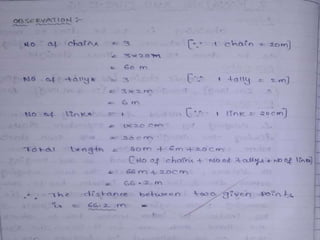 OBSERVATION :-
No of chains = 3 [∵ 1 chain = 20m]
= 3x20m
= 60 m
No of tallys = 3 [∵ 1 tally = 2m]
= 3x2m
= 6 m
No of links = 1 [∵ 1 link = 20cm]
= 1x20 cm
= 20 cm
Total length = 60m + 6m + 20cm
[No of chains + No of tallys + no of links]
= 66m + 20cm
= 66.2 m
∴ The distance between two given points
is = 66.2 m